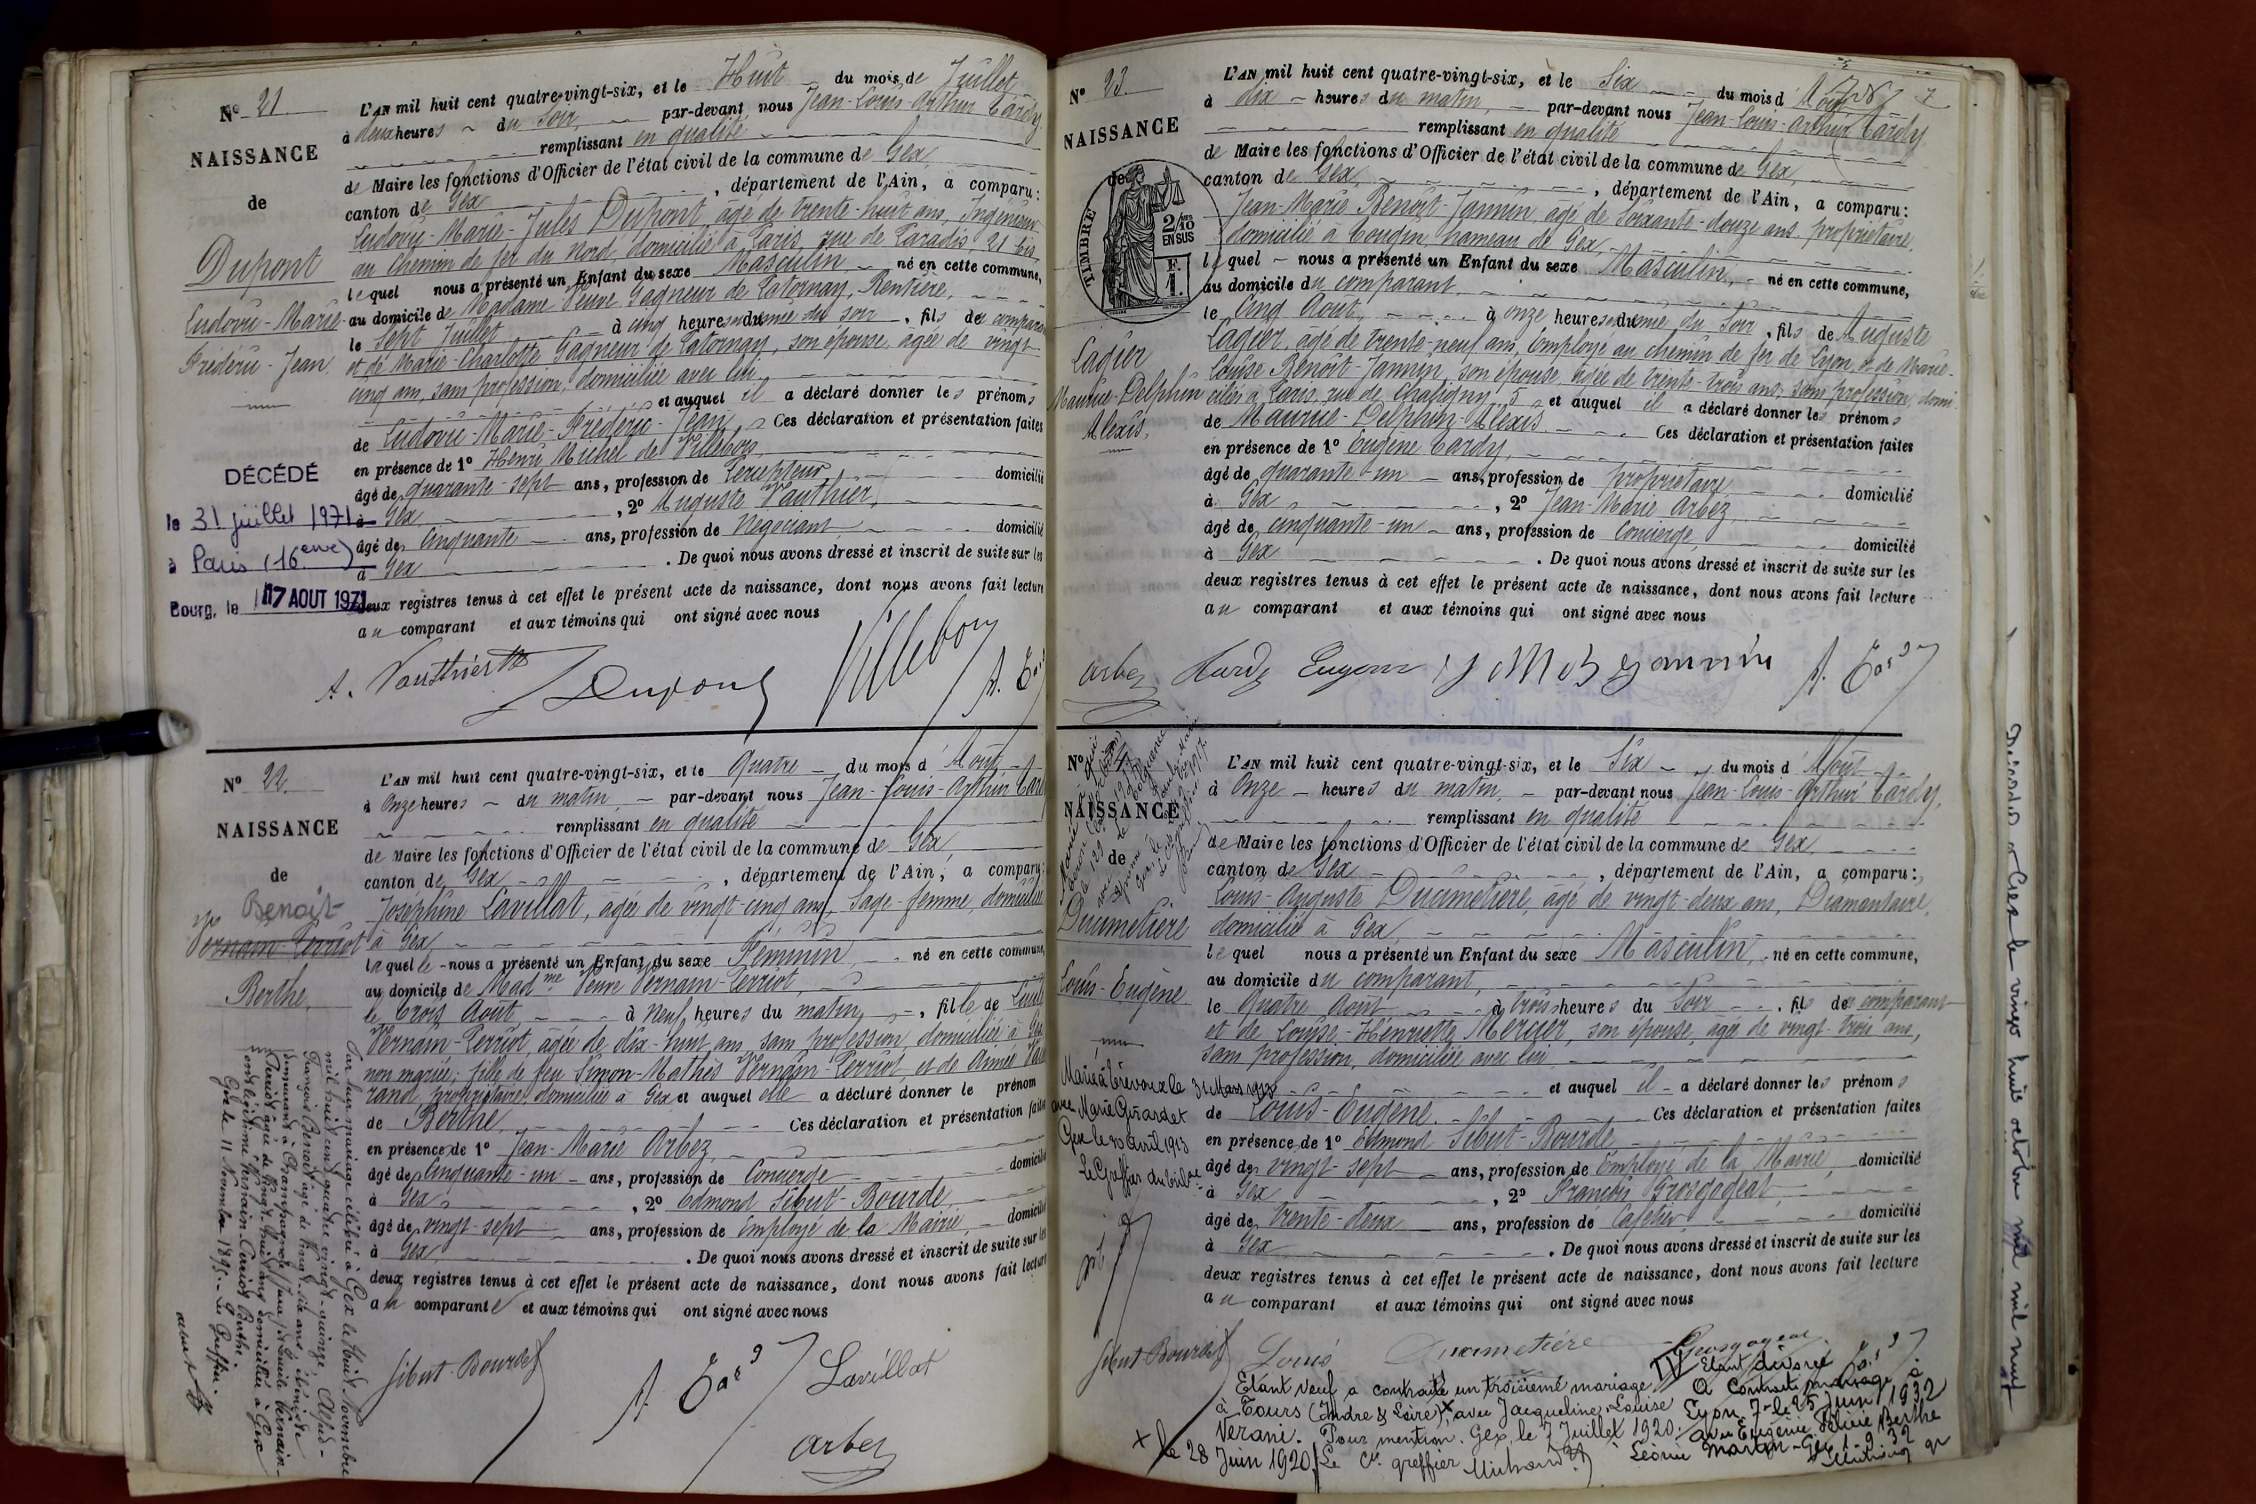 N° 21
NAISSANCE
de
Dupont
Ludovic-Marie-
Frédéric-Jean
DÉCÉDÉ
le 31 juillet 1971
à Paris (16eme)
Bourg, le 17 AOUT 1971
L'AN mil huit cent quatre-vingt-six, et le Huit du mois de Juillet
à deux heures du Soir par-devant nous Jean-Louis-Arthur Tardy
remplissant en qualité
de Maire les fonctions d'Officier de l'état civil de la commune de Gex
canton de Gex, département de l'Ain, a comparu:
Ludovic-Marie-Jules Dupont, âgé de trente-huit ans, Ingénieur
au Chemin de fer du Nord, domicilié à Paris, rue de Paradis, 21 bis,
lequel nous a présenté un Enfant du sexe Masculin, né en cette commune,
au domicile de Madame Veuve Gagneur de Patornay, Rentière,
le Sept Juillet à cinq heures et demie du soir, fils du comparant
et de Marie-Charlotte Gagneur de Patornay, son épouse, âgée de vingt-
cinq ans, sans profession, domiciliée avec lui,
et auquel il a déclaré donner les prénoms
de Ludovic-Marie-Frédéric-Jean. Ces déclaration et présentation faites
en présence de 1° Henri Michel de Villebois,
âgé de quarante-sept ans, profession de Percepteur domicilié
à Gex, 2° Auguste Vauthier,
âgé de Cinquante ans, profession de Négociant domicilié
à Gex. De quoi nous avons dressé et inscrit de suite sur les
deux registres tenus à cet effet le présent acte de naissance, dont nous avons fait lecture
au comparant et aux témoins qui ont signé avec nous
A. Vauthier Dupont Villebois
N° 22.
NAISSANCE
de
Benoit
Vernain-Perriot
Berthe,
L'AN mil huit cent quatre-vingt-six, et le Quatre du mois d'Août
à Onze heures du matin, par-devant nous Jean-Louis-Arthur Tardy
remplissant en qualité
de Maire les fonctions d'Officier de l'état civil de la commune de Gex
canton de Gex, département de l'Ain, a comparu:
Joséphine Lavillat, âgée de vingt-cinq ans, Sage-femme, domiciliée
à Gex,
laquelle nous a présenté un Enfant du sexe Féminin, né en cette commune,
au domicile de Madme Veuve Vernain-Perriot,
le Trois Août à Neuf heures du matin, fille de Lucile
Vernain-Perriot, âgée de dix-huit ans, sans profession, domiciliée à Gex
non mariée; fille de feu Simon-Mathès Vernain-Perriot et de Aimée
propriétaire, domiciliée à Gex et auquel elle a déclaré donner le prénom
de Berthe, Ces déclaration et présentation faites
en présence de 1° Jean-Marie Arbez,
âgé de Cinquante-un ans, profession de Concierge domicilié
à Gex, 2° Edmond Sibut-Bourde
âgé de vingt-sept ans, profession de Employé de la Mairie, domicilié
à Gex. De quoi nous avons dressé et inscrit de suite sur les
deux registres tenus à cet effet le présent acte de naissance, dont nous avons fait lecture
à la comparante et aux témoins qui ont signé avec nous
Par leur mariage célébré à Gex le huit Novembre
mil huit cent quatre vingt-quinze,
François Benoit âgé de vingt-six ans,
demeurant à Champagnole (Jura) et Lucile Vernain-
Perriot âgée de vingt-huit ans domiciliée à Gex
ont légitimé Vernain-Perriot Berthe.
Gex le 11 Novembre 1895. Le Greffier.
Sibut-Bourde Lavillat
Arbez
N° 23.
NAISSANCE
de
TIMBRE
2/10
EN SUS
F.
1.
Lagier
Maurice-Delphin
Alexis.
L'AN mil huit cent quatre-vingt-six, et le Six du mois d'Août
à dix heures du matin, par-devant nous Jean-Louis-Arthur Tardy
remplissant en qualité
de Maire les fonctions d'Officier de l'état civil de la commune de Gex,
canton de Gex, département de l'Ain, a comparu:
Jean-Marie Benoit-Jannin, âgé de soixante-douze ans, propriétaire,
domicilié à Tougin, hameau de Gex,
lequel nous a présenté un Enfant du sexe Masculin, né en cette commune,
au domicile du comparant,
le Cinq Août, à onze heures et demie du Soir, fils de Auguste
Lagier, âgé de trente-neuf ans, Employé au chemin de fer de Lyon, et de Marie-
Louise Benoit-Jannin, son épouse, âgée de trente-trois ans, sans profession, domi-
ciliés à Paris, rue de Chaligny, 5 et auquel il a déclaré donner les prénoms
de Maurice-Delphin-Alexis. Ces déclaration et présentation faites
en présence de 1° Eugène Tardy,
âgé de quarante-un ans, profession de propriétaire domicilié
à Gex, 2° Jean-Marie Arbez
âgé de cinquante-un ans, profession de Concierge, domicilié
à Gex. De quoi nous avons dressé et inscrit de suite sur les
deux registres tenus à cet effet le présent acte de naissance, dont nous avons fait lecture
au comparant et aux témoins qui ont signé avec nous
Arbez Tardy Eugene
N°
NAISSANCE
de
Ducimetière
Louis-Eugène
Marié à Trévoux le 31 Mars 1913
avec Marie Girardet
Gex le 20 avril 1913
Le Greffier du tribal
L'AN mil huit cent quatre-vingt-six, et le Six du mois d'Août
à Onze heures du matin, par-devant nous Jean-Louis-Arthur Tardy,
remplissant en qualité
de Maire les fonctions d'Officier de l'état civil de la commune de Gex
canton de Gex, département de l'Ain, a comparu:
Louis-Auguste Ducimetière, âgé de vingt-deux ans, Diamantaire,
domicilié à Gex,
lequel nous a présenté un Enfant du sexe Masculin, né en cette commune,
au domicile du comparant,
le Quatre Août à trois heures du Soir, fils du comparant
et de Louise-Henriette Mercier, son épouse, âgée de vingt-trois ans,
sans profession, domiciliée avec lui
et auquel il a déclaré donner les prénoms
de Louis-Eugène. Ces déclaration et présentation faites
en présence de 1° Edmond Sibut-Bourde
âgé de vingt-sept ans, profession de Employé de la Mairie, domicilié
à Gex, 2° François Grosgogeat
âgé de Trente-deux ans, profession de Cafetier domicilié
à Gex. De quoi nous avons dressé et inscrit de suite sur les
deux registres tenus à cet effet le présent acte de naissance, dont nous avons fait lecture
au comparant et aux témoins qui ont signé avec nous
Sibut-Bourde Louis Ducimetière Grosgogeat
Etant veuf a contracté un troisième mariage
à Tours (Indre & Loire) x avec Jacqueline, Louise
Verani. Pour mention. Gex, le 7 Juillet 1920.
x le 28 Juin 1920 Le Cis greffier
IV Etant divorcé
a contracté mariage à
Lyon 7e le 25 Juin 1932
avec Eugénie Félicie Berthe
Léonie
Décédé à Gex le vingt huit octobre mil neuf